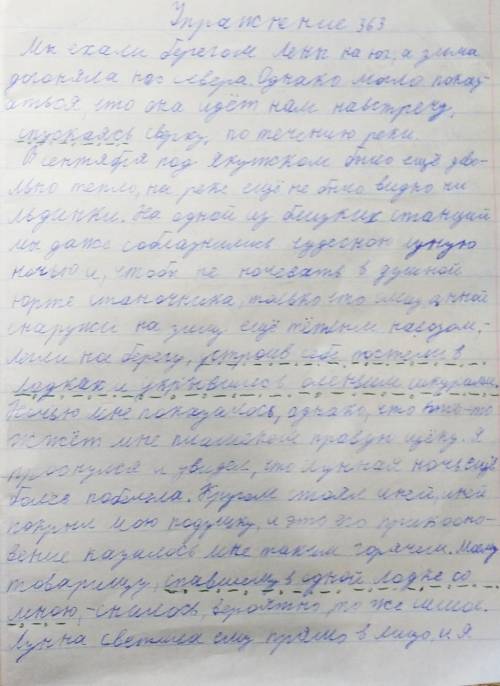 Упражнение 363
Мы ехали берегом Лены на юг, а зима
догоняла нас севера. Однако могло показ-
аться, что она идёт нам навстречу,
спускаясь сверху, по течению реки.
В сентября под Якутском было ещё дово-
льно тепло, на реке ещё не было видно ни
льдинки. На одной из близких станций
мы даже соблазнились чудесною лунную
ночью и, чтобы не ночевать в душной
юрте станочника, только что мазанной
снаружи на зиму ещё тёплым навозом,-
легли на берегу, устроив себе постели в
лодках и укрывшись оленьими шкурами.
Ночью мне показалось, однако, что кто-то
жжёт мне пламенем правую щёку. Я
проснулся и увидел, что лунная ночь ещё
более побелела. Кругом стоял иней, иней
покрыл мою подушку, и это его прикосно-
вение казалось мне таким горячим. Моему
товарищу, спавшему в одной лодке со
мною,- снилось, вероятно, то же самое.
Лунна светила ему прямо в лицо, и я